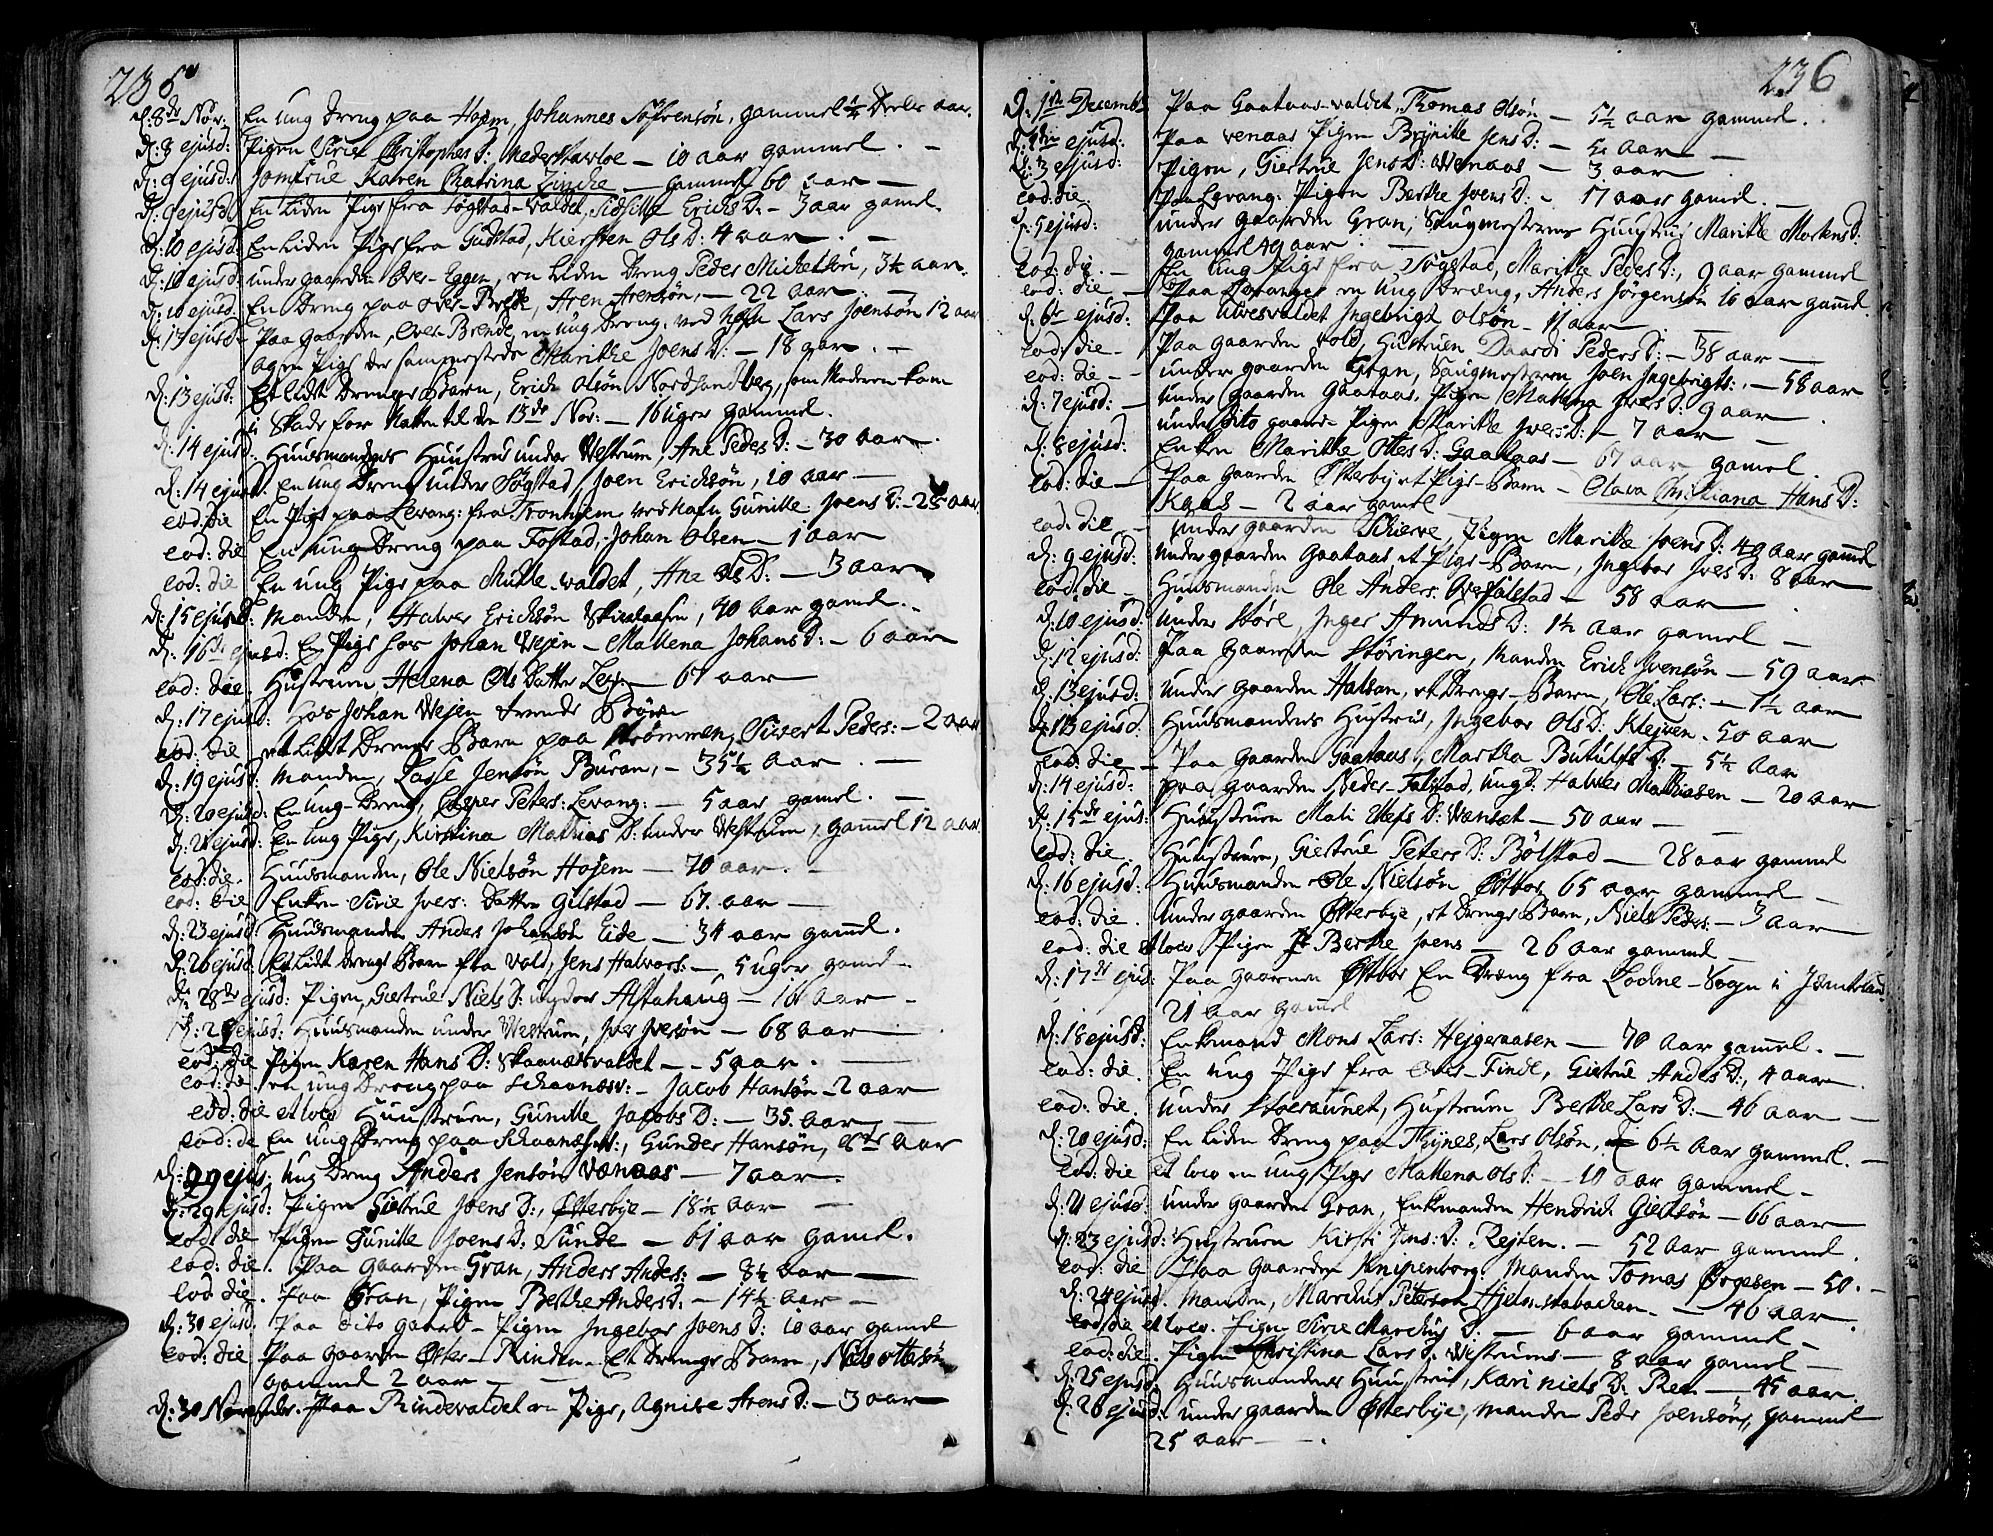 235
d: 8de Nov: En ung Dreng paa Hojem, Johannes Söfrensön, gammel 1/4 Deeler aar.
d: 8 ejusd: Pigen Sirie Christophers D: Neder - 10 aar gammel. -
d: 9 ejusd: Jomfrue Karen Chatrina Lincke - gammel 60 aar -
d: 9 ejusd: En Liden Pige fra Søgstad-valdet, Sidselle Erichs D. - 3 aar gamel.
d: 10 ejusd: En Liden Pige fra Gudstad, Kiersten Ols D: 4 aar - . -
d: 10 ejusd: under gaarden Over-Eggen, en Liden Dreng Peder Michelsön, 3 1/2 aar.
d: 10 ejusd. En Dreng paa over-Brede, Aren Arensön, - 22 aar . -
d: 11 ejusd: Paa gaarden, Over Brende, en ung Dreng, ved Lars Joensön 12 aar
og en Pige der sammestede Marithe Joens D: - 18 aar. -
d: 13 ejusd: Et Lidt Drenge Barn, Erich Olsön Nordsandberg, som Moderen kom
i Skade for Natten til den 13de Nov: - 16 uger gammel.
d: 14 ejusd: Huusmandens Huustrue under Westrum, Ane Peders D: - 30 aar.
d: 14 ejusd. En ung Dreng under Søgstad, Joen Erichsön, 10 aar -
eod: die En Pige paa Levang: fra Tronhiem ved Gunille Joens D: - 25 aar
eod: die En ung Dreng paa Fostad, Johan Olsen - 1 aar
eod: die En ung Pige paa Mulle-valdet, Ane Ols D: - 3 aar
d: 15 ejusd: Manden, Halver Erichsön, 40 aar gamel. -
d: 16de ejusd: En Pige hos Johan Wejen - Mallena Johans D: - 6 aar
eod: die Hustruen Helena Ols Datter - 67 aar
d: 17 ejusd: Hos Johan Wejen
eod: die et Lidt Drenge Barn paa Strømmen, Sivert Peders: - 2 aar
d: 19 ejusd: Manden, Lasse Jensön Buran, - 35 1/2 aar . -
d: 20 ejusd: En ung Dreng, Casper Peters: Levang: - 5 aar gamel. -
d: 21 ejusd: En ung Pige, Kirstina Mathias D: under Westrum, gammel 12 aar
eod: die. Huusmanden, Ole Nielsön Hojem - 70 aar. -
eod: die Enken Sirie Ivers: Datter Gilstad - 67. aar -
d: 23 ejusd: Huusmanden Anders Johansön Eide - 34 aar gamel.
d: 26 ejusd: Et Lidt Drenge Barn fra Vold, Jens Halvors: - 5 uger gamel -
d: 28de ejusd: Pigen, Giertrue Niels D: under Alstahaug - 16 aar -
d: 29 ejusd: Huusmanden under Westrum, Iver Ivesön - 68 aar
eod: die Pigen Karen Hans D: Skaanesvaldet - 5 aar. -
eod: die en ung Dreng paa Schaanesv: - Jacob Hansön - 2 aar
eod: die et loco Huustruen, Gunille Jacobs D: - 35. aar -
eod: die En ung Dreng paa Schaanesv:, Gunder Hansön, 8te aar
d: 29 ejus. ung Dreng Anders Jensön Vænaas - 7 aar.
d: 29 ejusd: Pigen Giertrue Joens D:, Østerbye - 18 1/2 aar -
eod: die Pigen Gunille Joens D: Sunde - 61 aar gamel.
eod: die. Paa gaarden Gran, Anders Anders: - 8 1/2 aar -
eod die. Paa Gran, Pigen Berthe Anders D: - 14 1/2 aar -
d: 30 ejusd. Paa dito gaard - Pigen Ingebor Joens D: 10 aar gamel
eod: die Paa gaarden Øster-Rinden. Et Drenge Barn, Niels Ottesön
gammel 2 aar - -
d: 30 Novembr. Paa Rindevaldet en Pige, Agnise Arens D: - 3 aar
236
d: 1te Decemb: Paa Gaataas-valdet, Thomas Olsön - 5 1/2 aar gammel.
ejusd: Paa Venaas Pigen Brynille Jens D: - aar -
d: 3 ejusd: Pigen, Giertrue Jens D: Wenaas - 3 aar
eod: die. Paa Levang: Pigen Berthe Joens D: - 17 aar gamel. -
d: 5 ejusd: under gaarden Gran, Saugmesterens Huustrue Marithe Mortens D:
gammel 49 aar : -
eod: die. - En ung Pige fra Søgstad, Marithe Peders D:, 9 aar gammel
eod: die - Paa Levanger en ung Dræng, Anders Jørgensön 10 aar gamel.
d: 6te ejusd: Paa Alvesvaldet Ingebrigt Olsön - 11 aar -
eod: die - Paa gaarden Vold, Hustruen Daardi Peders D: - 38 aar -
eod: die - - under gaarden Gran, Saugmesteren Joen Ingebrigts:. - 58 aar
d: 7 ejusd: - under gaarden Gaataas, Pigen Mallena Ivers D: 9 aar
under dito gaard - Pigen Marithe Ivers D: - 7 aar -
d: 8 ejusd: Enken Marithe Oles D: Gaataas - 67 aar gamel.
eod: die - Paa gaarden Østerby et Pige-Barn - Olava Christiana Hans D:
Kaas - 2 aar gamel
eod: die - under gaarden Schieve, Pigen Marithe Joens D: 49 aar gammel
d: 9 ejusd: under gaarden Gaataas et Pige-Barn, Ingebor Ivers D: 8 aar
eod: die - Huusmanden Ole Anders: Over Falstad - 58 aar
d: 10 ejusd: under Støre, Inger Amunds D: 1 1/2 aar gamel -
d: 12 ejusd: Paa gaarden Støringen, Manden Erich Ivensön - 59 aar
d: 13 ejusd: under gaarden Halsan, et Drenge-Barn, Ole Lars: - 1 1/2 aar
d: 13 ejusd: Huusmandens Hustrue, Ingebor Ols D: Klejven - 50 aar
eod: die - Paa gaarden Gaataas, Martha Butulfs D: - 5 1/2 aar
d: 14 ejusd: paa gaarden Neder-Falstad, ung D: Halver Mathiasen - 20 aar
d: 15de ejus: Huustruen Mali D: Vænset - 50 aar - -
eod: die. Huustruen, Giertrue Peters D: Bølstad - 28 aar gammel
d: 16 ejusd: Huusmanden Ole Nielsön Østbor 65 aar gammel -
eod: die. under gaarden Østerbye, et Drenge Barn, Niels Peders: - 3 aar
eod: die et loco Pigen Berthe Joens - 26 aar gammel -
d: 17de ejus: Paa gaarden Østbor En Dreng fra Lodne-Sogn i Jæmteland
21 aar gamel
d: 18 ejusd: Enkmand Mons Lars: Hejgeraasen - 70 aar gamel. -
eod: die. En ung Pige fra Over-Finde, Giertrue Anders D:, 4 aar
eod: die. under Stoeraunet, Hustruen Berthe Lars D: - 46 aar -
d: 20 ejusd: En Liden Dreng paa Thynes, Lars Olsön, 6 1/2 aar gammel. -
eod: die et loco en ung Pige Mallena Ols D: - 10 aar gammel -
d: 21 ejusd: under gaarden Gran, Enkmanden Hendrich Giertsön - 66 aar
d: 23 ejusd: Hustruen Kirsti Jens: D: Rejten. - 52 aar gammel.
eod: die Paa Gaarden Knipenborg: Manden Tomas Ørgesen - 50. -
d: 24 ejusd. Manden, Marcus Peterson - 46 aar.
eod die et loco. Pigen Sirie Marcus D: - 6 aar gammel -
eod: die. Pigen Christina Lars D. Westrum - 8 aar gammel -
d: 25 ejusd. Huusmandens Huustrue, Kari Niels D: Ree - 45 aar.
d: 26 ejusd: under gaarden Østerbye, Manden Peder Joensön, gammel
25 aar - .